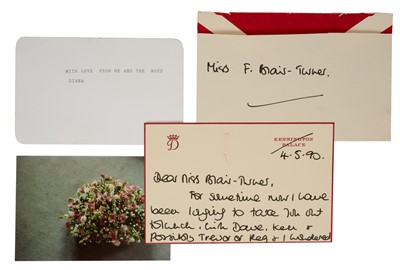 WITH LOVE FROM ME AND THE BOYS
DIANA
Miss F. Blair-Turner.
D
KENSINGTON
PALACE
4.5.90.
Dear Miss Blair-Turner,
For sometime now I have
been trying to take you out
to lunch, with Dave, Ken &
possibly Trevor or Reg & I wondered